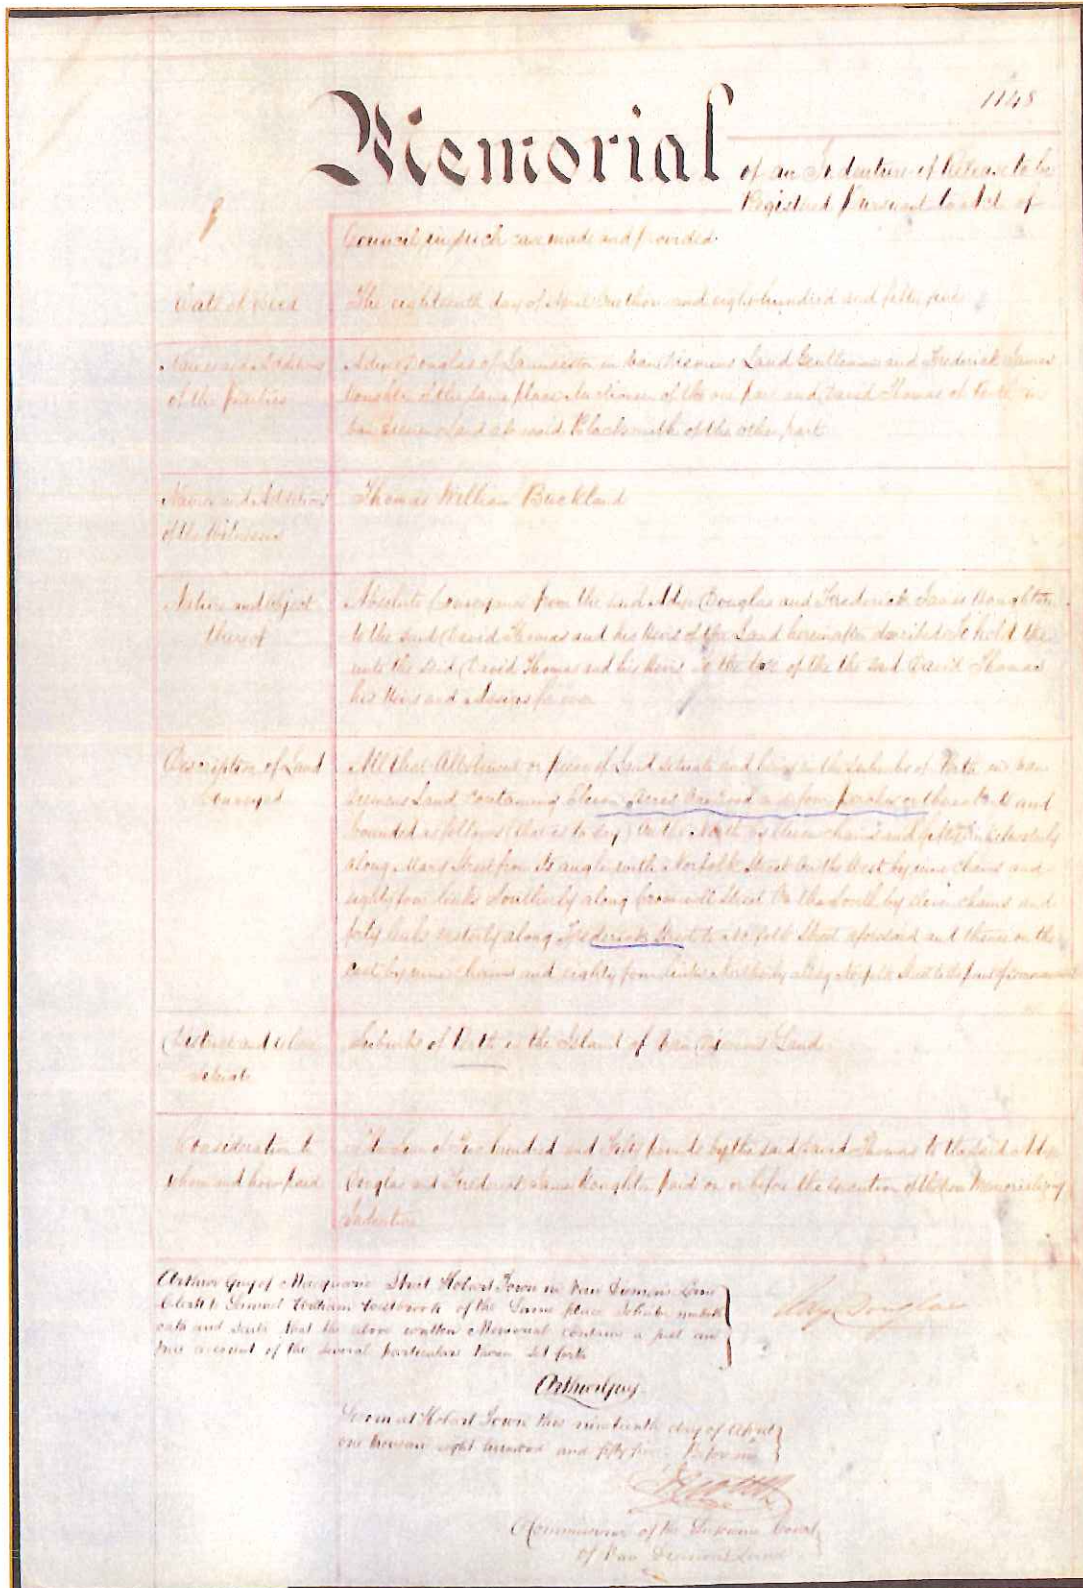 1148
Memorial of an Indenture of Release to be
Registered Pursuant to Act of
Council in such case made and provided
Date of Deed The eighteenth day of April One thousand eight hundred and fifty
Names and Additions of Launceston in Van Diemens Land Gentleman and Frederick James
of the parties of the same place Auctioneer of the one part and David Thomas of Perth in
Van Diemens Land aforesaid Blacksmith of the other part
Names and Additions Thomas William Buckland
of the Witnesses
Nature and object Absolute Conveyance from the said Adye Douglas and Frederick James Houghton
thereof to the said David Thomas and his Heirs of the Land hereinafter described To hold the
unto the said David Thomas and his heirs to the Use of the the said David Thomas
his Heirs and Assigns for ever
Description of Land All that Allotment or piece of Land situate and being in the Suburbs of Perth in Van
Conveyed Diemens Land Containing Eleven Acres One Rood and four perches or thereabouts and
bounded as follows (that is to say) On the North by Eleven chains and Westerly
along Mary Street from its angle with Norfolk Street On the West by nine chains and
eighty four links Southerly along Cromwell Street On the South by eleven chains and
forty links easterly along Frederick Street to Norfolk Street aforesaid and thence on the
East by nine chains and eighty four links Northerly along Norfolk Street to the point of
District and where Suburbs of Perth in the Island of Van Diemens Land
situate
Consideration to The Sum of hundred and Fifty pounds by the said David Thomas to the said Adye
whom and how paid Douglas and Frederick James Houghton paid on or before the execution of the
Indenture
Arthur Guy of Macquarie Street Hobart Town in Van Diemens Land
Clerk to Samuel William Westbrook of the same place Solicitor maketh
oath and saith that the above written Memorial contains a just and
true account of the several particulars therein set forth
Adye Douglas
Arthur Guy
Sworn at Hobart Town this nineteenth day of April
one thousand eight hundred and fifty Before me
Commissioner of the Supreme Court
of Van Diemens Land